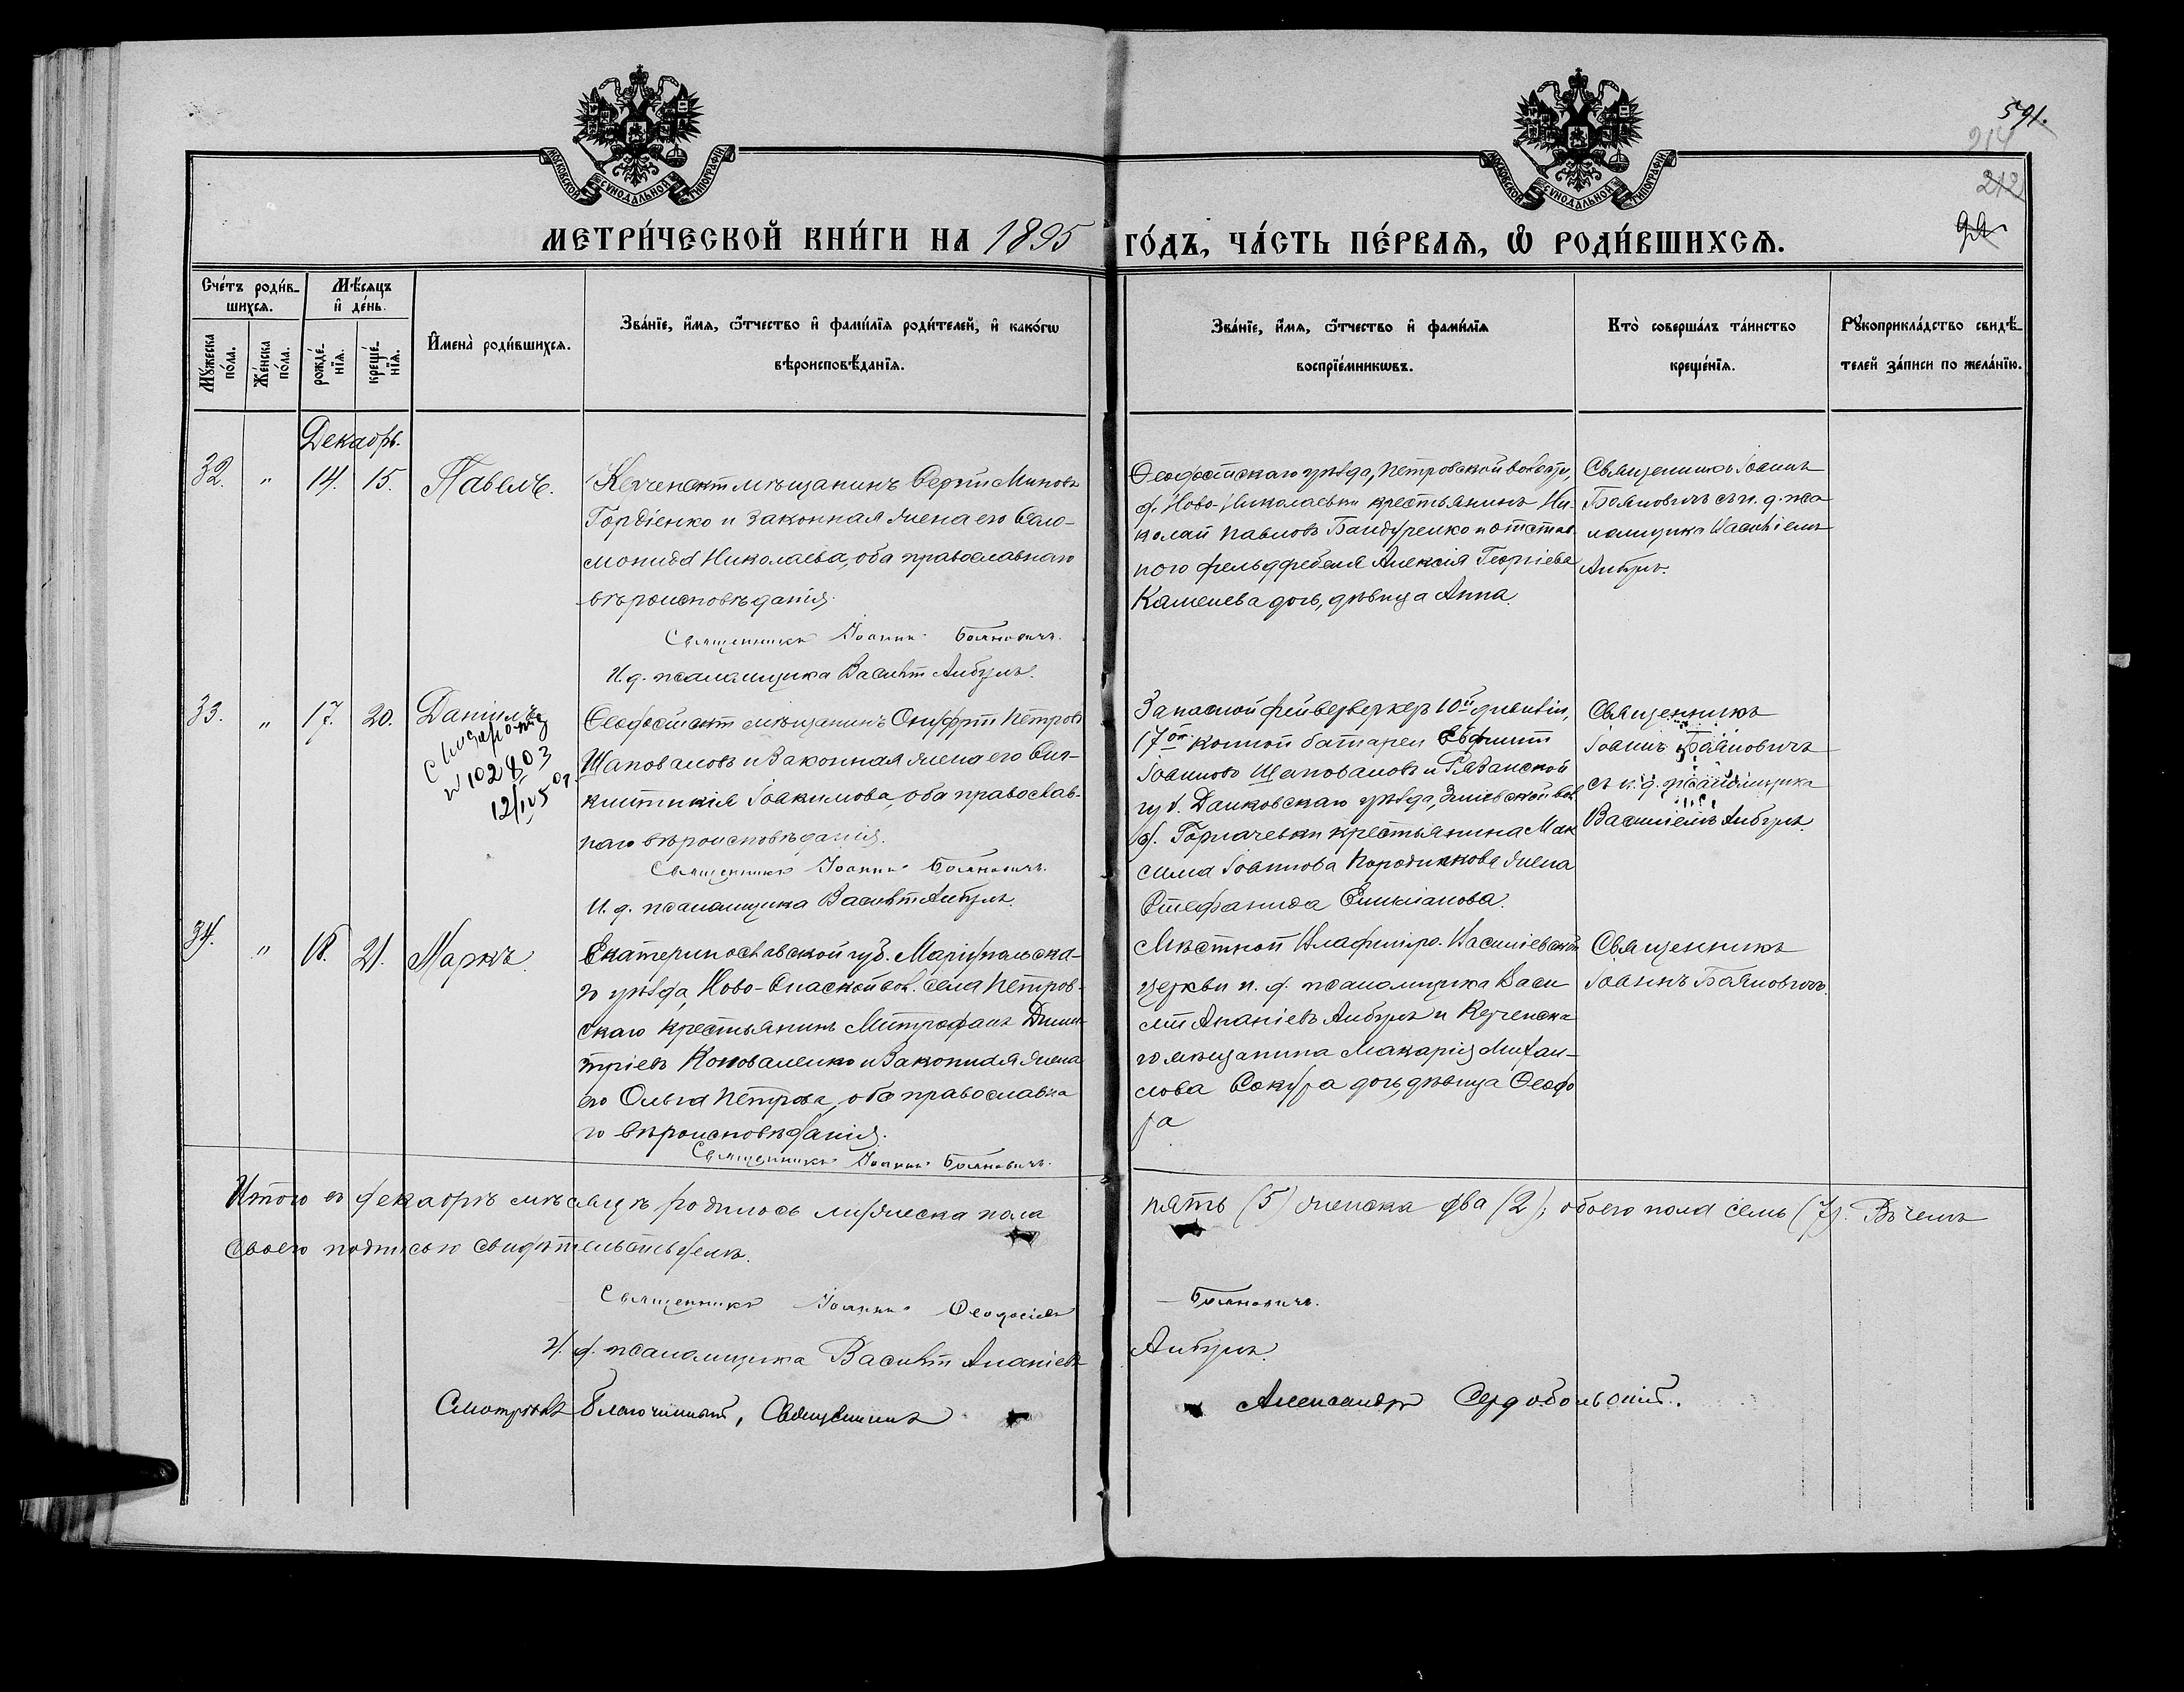 591.
214
212
МОСКОВСКОЙ СУНОДАЛЬНОЙ ТИПОГРАФІИ
МОСКОВСКОЙ СУНОДАЛЬНОЙ ТИПОГРАФІИ
МЕТРИ́ЧЕСКОЙ КНИ́ГИ НА 1895 ГО́ДЪ, ЧА́СТЬ ПЕ́РВАѦ, Ѽ РОДИ́ВШИХСѦ.
Сче́тъ роди́в-
шихсѧ.
Мꙋ́жеска по́ла.
Же́нска по́ла.
Мѣ́сѧцъ
и҆ де́нь.
рожде́-
нїѧ.
креще́-
нїѧ.
И҆мена̀ роди́вшихсѧ.
Зва́нїе, и҆́мѧ, ѻ҆́тчество и҆ фами́лїѧ роди́телей, и҆ како́гѡ
вѣроисповѣ́данїѧ.
Зва́нїе, и҆́мѧ, ѻ҆́тчество и҆ фами́лїѧ
воспрїе́мникѡвъ.
Кто̀ соверша́лъ та́инство
креще́нїѧ.
Рꙋкоприкла́дство свидѣ́-
телей за́писи по жела́нїю.
Декабрь.
32. " 14. 15. Павелъ.
Керченскій мѣщанинъ Сергій Миновъ
Гордіенко и законная жена его Соло-
монида Николаева, оба православнаго
вѣроисповѣданія.
Священникъ Іоаннъ Бояновичъ.
И. д. псаломщика Василій Анбулъ.
Ѳеодосійскаго уѣзда, Петровской волости,
д. Ново-Николаевки крестьянинъ Ни-
колай Павловъ Бандуренко и отстав-
ного фельдфебеля Алексія Георгіева
Каменева дочь, дѣвица Анна.
Священникъ Іоаннъ
Бояновичъ съ и. д. пса-
ломщика Василіемъ
Анбулъ.
33. " 17. 20. Даніилъ
№ 102803
Ѳеодосійскій мѣщанинъ Онуфрій Петровъ
Шаповаловъ и законная жена его Син-
клитикія Іоакимова, оба православ-
наго вѣроисповѣданія.
Священникъ Іоаннъ Бояновичъ.
И. д. псаломщика Василій Анбулъ.
Запасной фейверверкеръ 10й дивизіи,
17ой конной батареи Евфимій
Іоанновъ Шаповаловъ и Рязанской
губ. Данковскаго уѣзда, Змievской вол.
д. Горлачевки крестьянина Мак
сима Іоаннова Породинкова жена
Стефанида Емиліанова.
Священникъ
Іоаннъ Бояновичъ
съ и. д. псаломщика
Василіемъ Анбулъ.
34. " 18. 21. Маркъ.
Екатеринославской губ. Маріупольска-
го уѣзда, Ново-Спаской вол. села Петров-
скаго крестьянинъ Митрофанъ Дими-
тріевъ Коноваленко и законная жена
его Ольга Петрова, оба православна
го вѣроисповѣданія.
Священникъ Іоаннъ Бояновичъ.
Мѣстной Владиміро-Василіевской
церкви и. д. псаломщика Васи
лій Ананіевъ Анбулъ и Керченска
го мѣщанина Макарія Михаи-
лова Сокура дочь, дѣвица Ѳеодо
ра
Священникъ
Іоаннъ Бояновичъ.
Итого въ декабрѣ мѣсяцѣ родилось мужеска пола пять (5) женска два (2); обоего пола семь (7). Въ чемъ
своею подписью свидѣтельствуемъ.
Священникъ Іоаннъ Ѳеодосіевъ Бояновичъ.
И. д. псаломщика Василій Ананіевъ Анбулъ.
Смотрѣлъ Благочинный, Священникъ Александръ Сердобольскій.